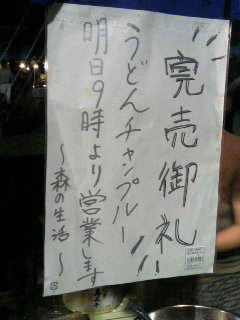 完売御礼
うどんチャンプルー
明日9時より営業します
〜森の生活〜